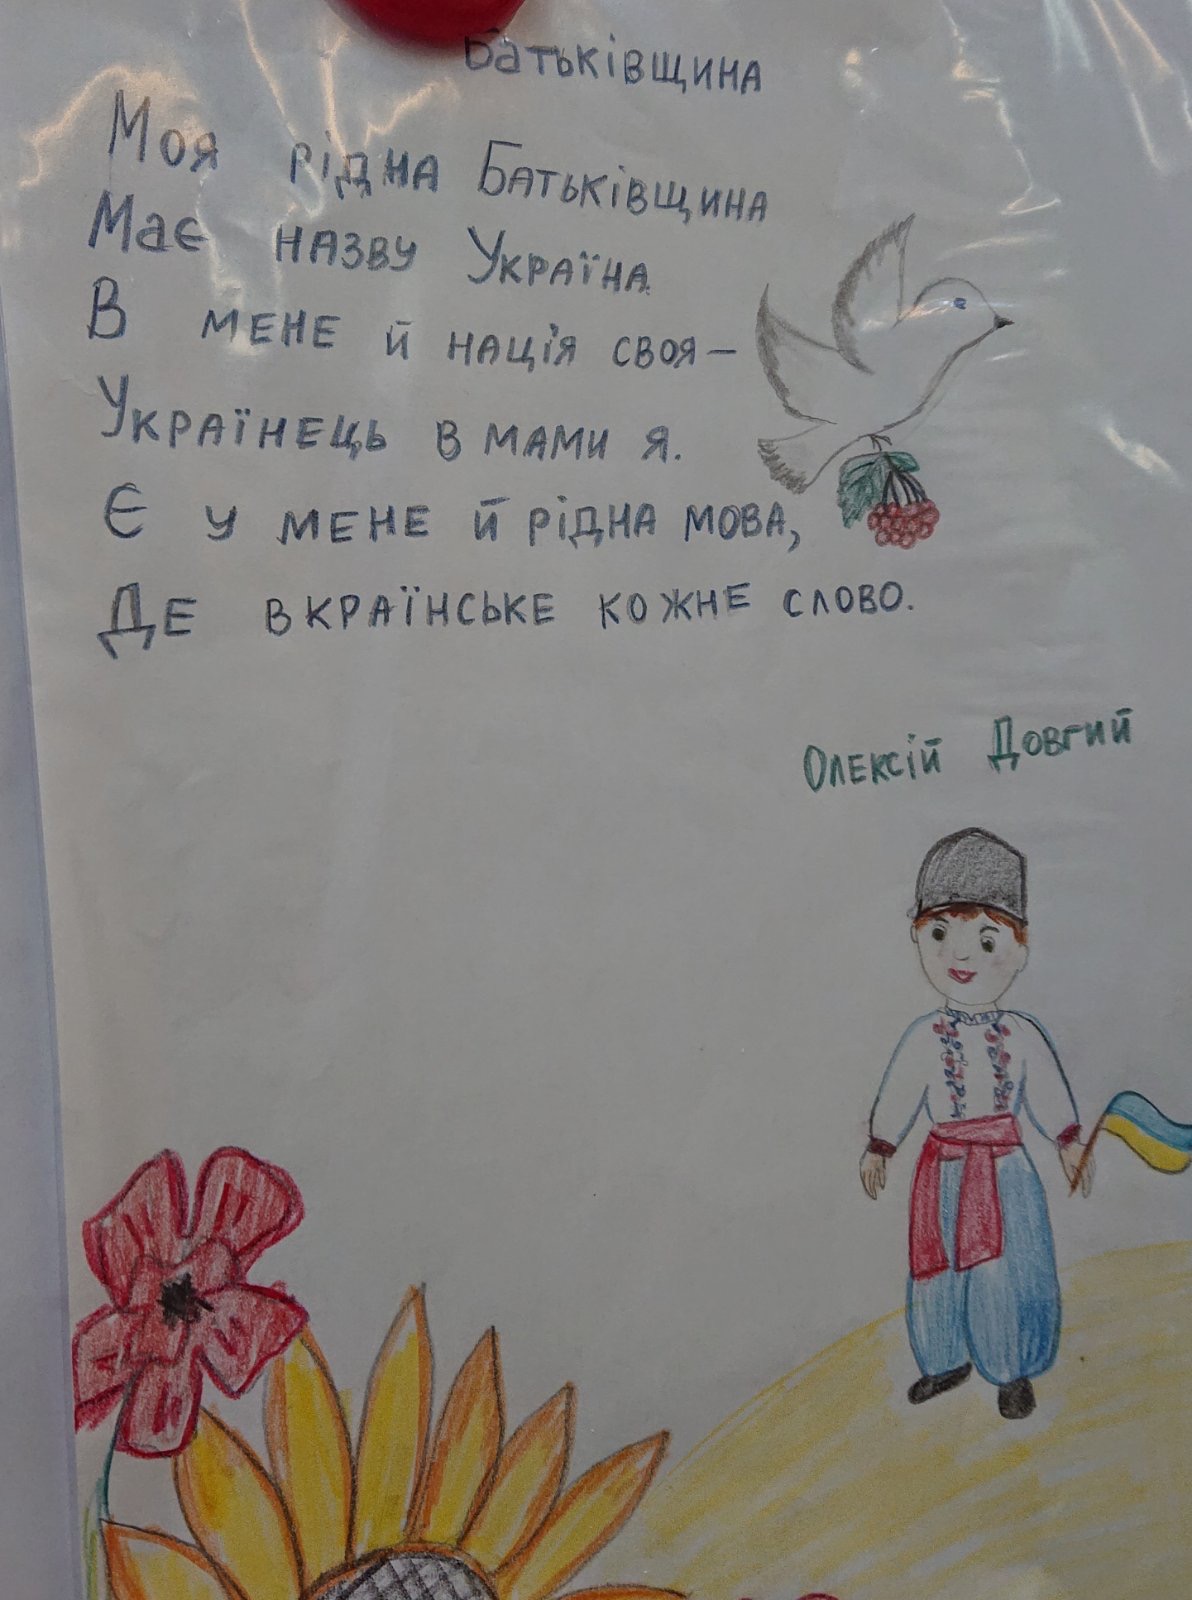 Батьківщина
Моя рідна Батьківщина
Має назву Україна.
В мене й нація своя –
Українець в мами я.
Є у мене й рідна мова,
Де вкраїнське кожне слово.
Олексій Довгий